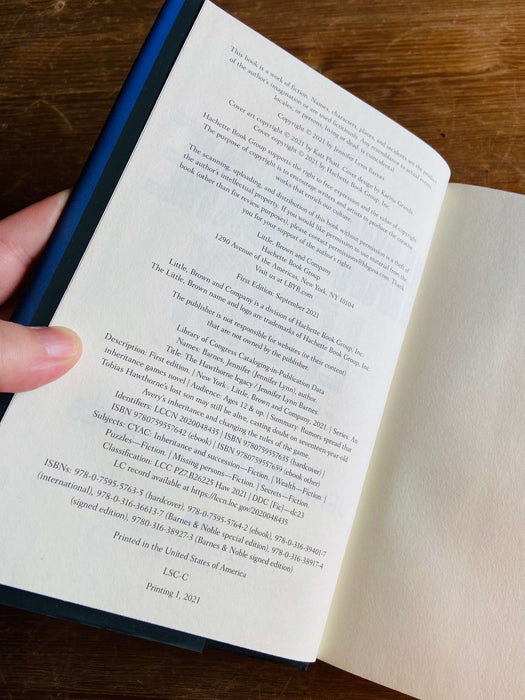 This book is a work of fiction. Names, characters, places, and incidents are the product
of the author's imagination or are used fictitiously. Any resemblance to actual events,
locales, or persons, living or dead, is coincidental.
Copyright © 2021 by Jennifer Lynn Barnes
Cover art copyright © 2021 by Katt Phatt. Cover design by Karina Granda.
Cover copyright © 2021 by Hachette Book Group, Inc.
Hachette Book Group supports the right to free expression and the value of copyright.
The purpose of copyright is to encourage writers and artists to produce the creative
works that enrich our culture.
The scanning, uploading, and distribution of this book without permission is a theft of
the author's intellectual property. If you would like permission to use material from the
book (other than for review purposes), please contact permissions@hbgusa.com. Thank
you for your support of the author's rights.
Little, Brown and Company
Hachette Book Group
1290 Avenue of the Americas, New York, NY 10104
Visit us at LBYR.com
First Edition: September 2021
Little, Brown and Company is a division of Hachette Book Group, Inc.
The Little, Brown name and logo are trademarks of Hachette Book Group, Inc.
The publisher is not responsible for websites (or their content)
that are not owned by the publisher.
Library of Congress Cataloging-in-Publication Data
Names: Barnes, Jennifer (Jennifer Lynn), author.
Title: The Hawthorne legacy / Jennifer Lynn Barnes.
Description: First edition. | New York : Little, Brown and Company, 2021. | Series: An
inheritance games novel | Audience: Ages 12 & up. | Summary: Rumors spread that
Tobias Hawthorne's lost son may still be alive, casting doubt on seventeen-year-old
Avery's inheritance and changing the rules of the game.
Identifiers: LCCN 2020048435 | ISBN 9780759557635 (hardcover) |
ISBN 9780759557642 (ebook) | ISBN 9780759557659 (ebook other)
Subjects: CYAC: Inheritance and succession—Fiction. | Wealth—Fiction. |
Puzzles—Fiction. | Missing persons—Fiction. | Secrets—Fiction.
Classification: LCC PZ7.B26225 Haw 2021 | DDC [Fic]—dc23
LC record available at https://lccn.loc.gov/2020048435
ISBNs: 978-0-7595-5763-5 (hardcover), 978-0-7595-5764-2 (ebook), 978-0-316-39401-7
(international), 978-0-316-36613-7 (Barnes & Noble special edition), 978-0-316-38917-4
(signed edition), 9780-316-38927-3 (Barnes & Noble signed edition)
Printed in the United States of America
LSC-C
Printing 1, 2021